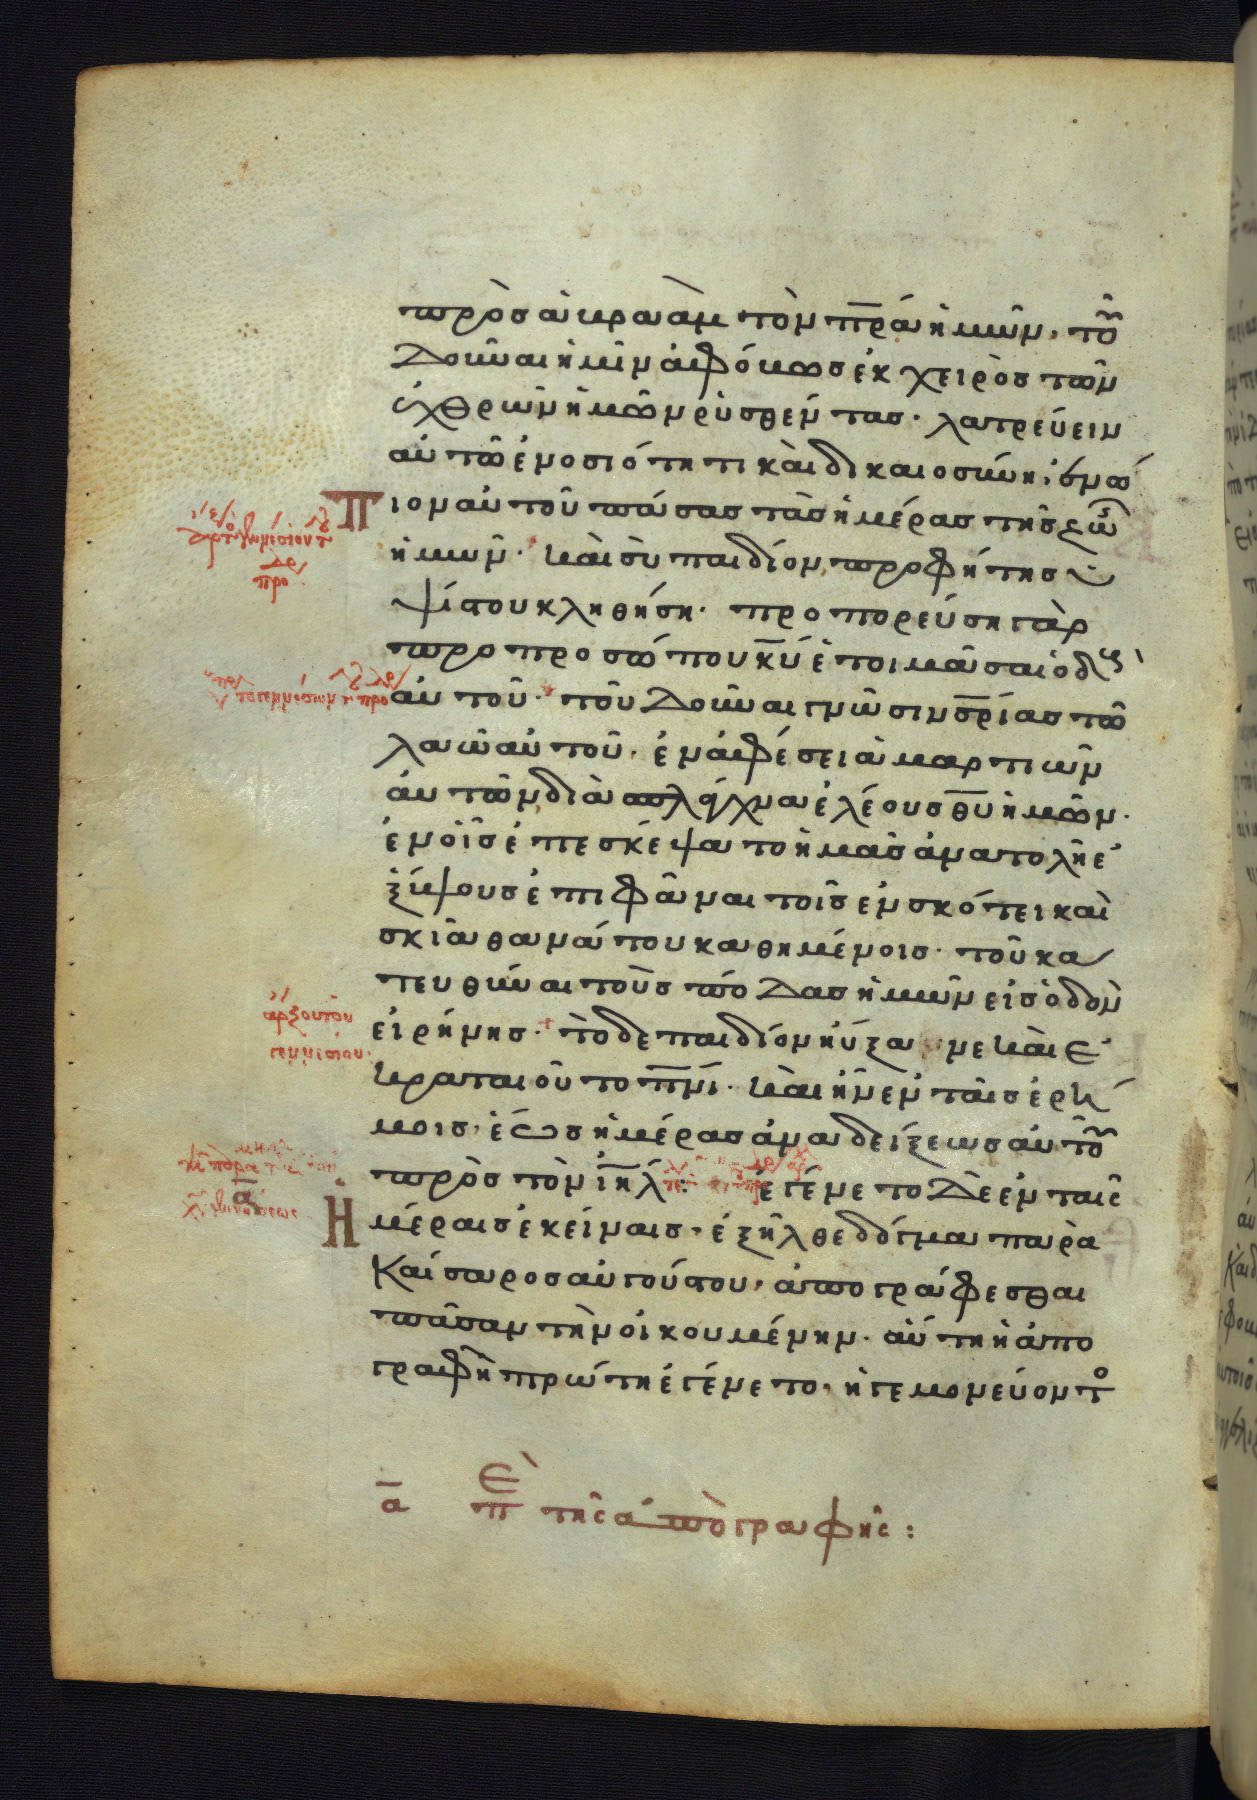 πρὸς ἀβραὰμ τὸν πρ̅α ἡμῶν, τοῦ
δοῦναι ἡμῖν ἀφόβως ἐκ χειρὸς τῶν
ἐχθρῶν ἡμῶν ῥυσθέντας· λατρεύειν
αὐτῶ ἐν ὁσιότητι καὶ δικαιοσύνη ἐνώ
πιον αὐτοῦ πάσας τὰς ἡμέρας τῆς ζωῆ
ἡμῶν· καὶ σὺ παιδίον, προφήτης ὑ
ψίστου κληθήση· προπορεύση γὰρ
πρὸ προσώπου κ̅υ ἑτοιμάσαι ὁδοὺς
αὐτοῦ· τοῦ δοῦναι γνῶσιν σ̅ρ̅ίας τῶ
λαῶ αὐτοῦ, ἐν ἀφέσει ἁμαρτιῶν
αὐτῶν διὰ σπλάγχνα ἐλέους θ̅υ ἡμῶν·
ἐν οἷς ἐπεσκέψατο ἡμᾶς ἀνατολὴ ἐ
ξ ὕψους ἐπιφᾶναι τοῖς ἐν σκότει καὶ
σκιᾶ θανάτου καθημένοις· τοῦ κα
τευθύναι τοὺς πόδας ἡμῶν εἰς ὁδὸν
εἰρήνης· τὸ δὲ παιδίον ηὔξανε καὶ ἐ
κραταιοῦτο π̅ν̅ι· καὶ ἦν ἐν ταῖς ἐρή
μοις, ἕως ἡμέρας ἀναδείξεως αὐτοῦ
πρὸς τὸν ι̅η̅λ: ἐγένετο δὲ ἐν ταῖς
ἡμέραις ἐκείναις, ἐξῆλθε δόγμα παρὰ
καίσαρος αὐγούστου, ἀπογράφεσθαι
πᾶσαν τὴν οἰκουμένην· αὕτη ἡ ἀπο
γραφὴ πρώτη ἐγένετο, ἡγεμονεύοντο
α̅ πε τῆς ἀπογραφῆς: